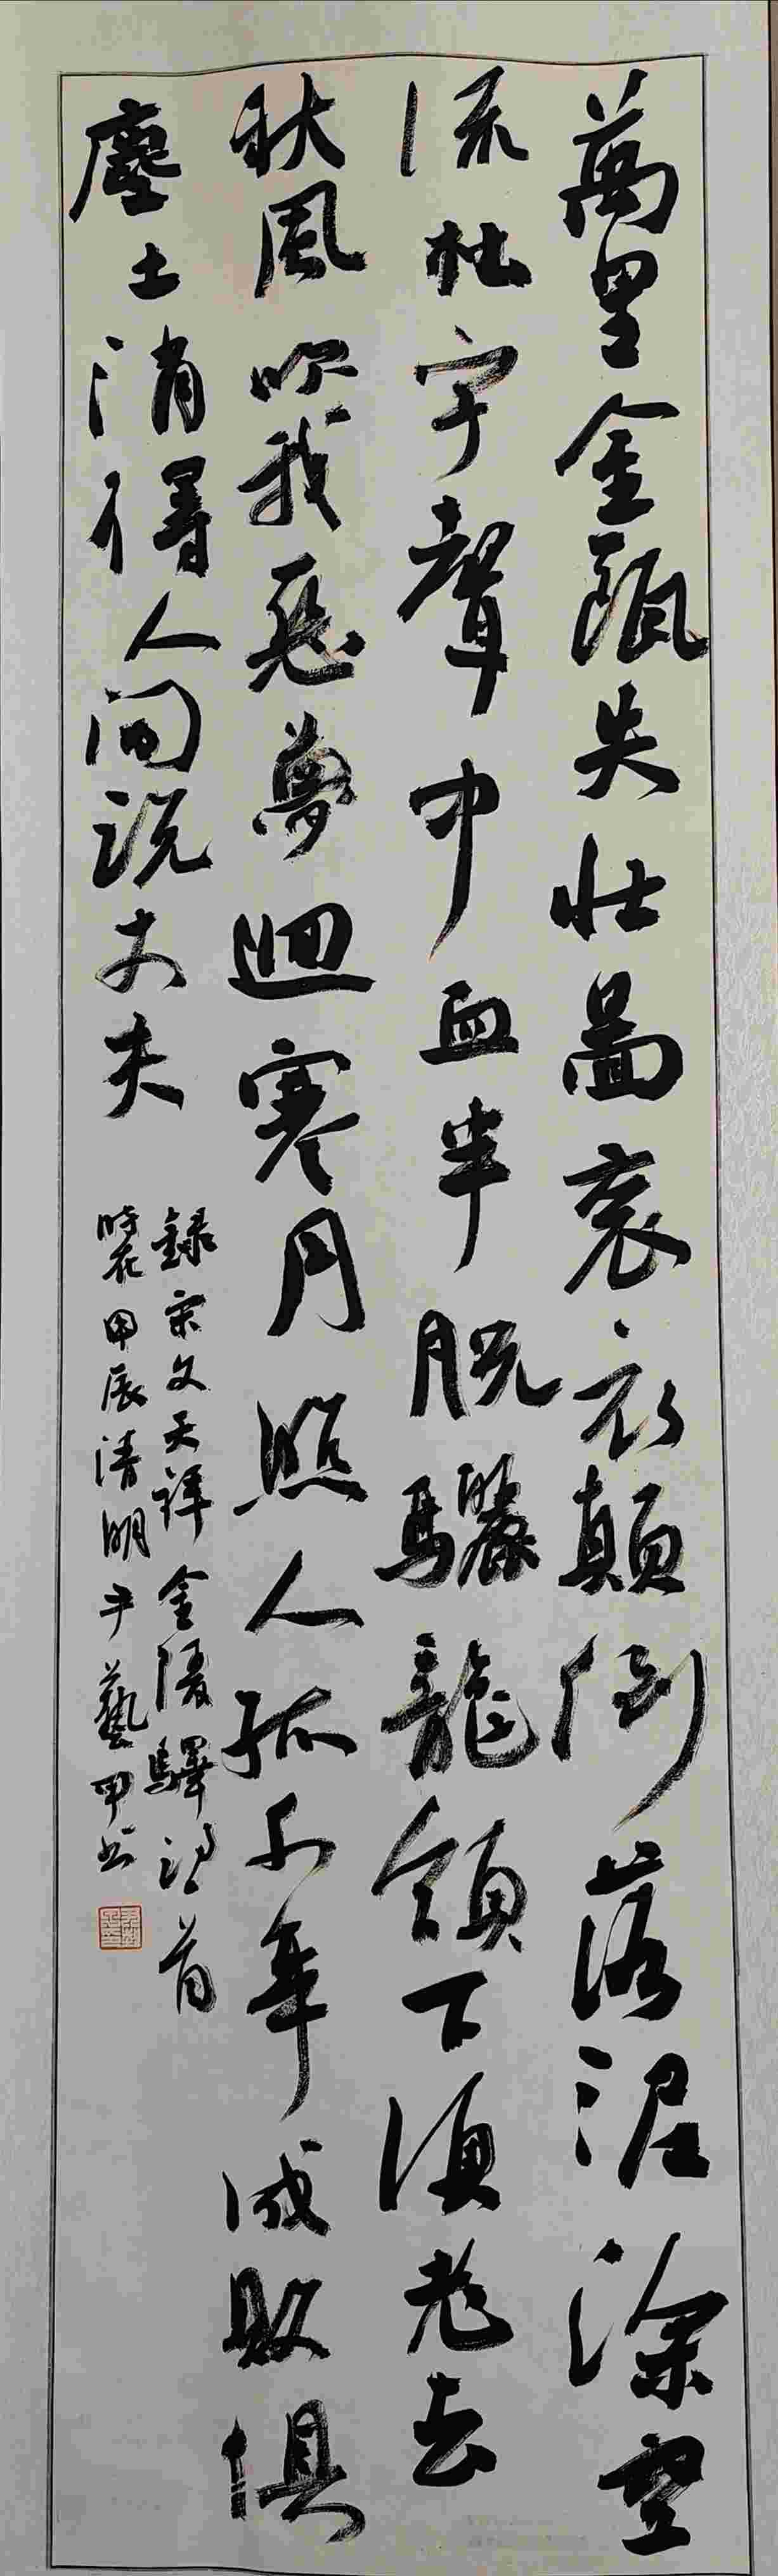 萬里金甌失壯圖衮衣顛倒落泥塗空
流杜宇聲中血半脱驪龍頷下須老去
秋風吹我惡夢迴寒月照人孤千年成敗俱
塵土消得人間説丈夫
錄宋文天祥金陵驛詩首
時在甲辰清明于藝甲書